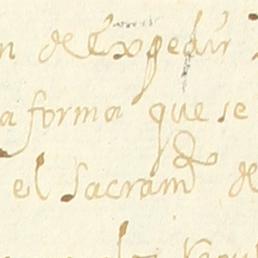 n de Expedir
a forma que se
el Sacramto de